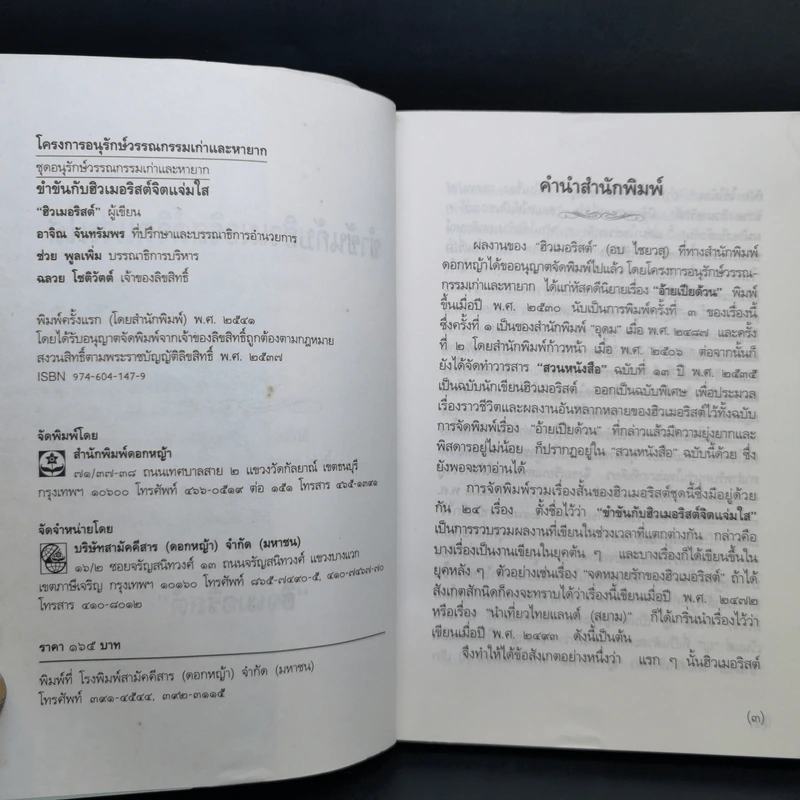 โครงการอนุรักษ์วรรณกรรมเก่าและหายาก
ชุดอนุรักษ์วรรณกรรมเก่าและหายาก
ขำขันกับฮิวเมอริสต์จิตแจ่มใส
“ฮิวเมอริสต์” ผู้เขียน
อาจิณ จันทรัมพร ที่ปรึกษาและบรรณาธิการอำนวยการ
ช่วย พูลเพิ่ม บรรณาธิการบริหาร
ฉลวย โชติวัตต์ เจ้าของลิขสิทธิ์
พิมพ์ครั้งแรก (โดยสำนักพิมพ์) พ.ศ. ๒๕๔๑
โดยได้รับอนุญาตจัดพิมพ์จากเจ้าของลิขสิทธิ์ถูกต้องตามกฎหมาย
สงวนสิทธิ์ตามพระราชบัญญัติลิขสิทธิ์ พ.ศ. ๒๕๓๗
ISBN 974-604-147-9
จัดพิมพ์โดย
สำนักพิมพ์ดอกหญ้า
๗๑/๓๗-๓๘ ถนนเทศบาลสาย ๒ แขวงวัดกัลยาณ์ เขตธนบุรี
กรุงเทพฯ ๑๐๖๐๐ โทรศัพท์ ๔๖๖-๐๕๑๙ ต่อ ๑๕๑ โทรสาร ๔๖๕-๑๓๙๑
จัดจำหน่ายโดย
บริษัทสามัคคีสาร (ดอกหญ้า) จำกัด (มหาชน)
๑๖/๒ ซอยจรัญสนิทวงศ์ ๑๓ ถนนจรัญสนิทวงศ์ แขวงบางแวก
เขตภาษีเจริญ กรุงเทพฯ ๑๐๑๖๐ โทรศัพท์ ๘๖๕-๗๔๙๐-๕, ๔๑๐-๗๕๖๗-๗๐
โทรสาร ๔๑๐-๘๐๑๒
ราคา ๑๖๕ บาท
พิมพ์ที่ โรงพิมพ์สามัคคีสาร (ดอกหญ้า) จำกัด (มหาชน)
โทรศัพท์ ๓๙๑-๔๕๔๔, ๓๙๒-๓๑๑๕
คำนำสำนักพิมพ์
ผลงานของ “ฮิวเมอริสต์” (อบ ไชยวสุ) ที่ทางสำนักพิมพ์
ดอกหญ้าได้ขออนุญาตจัดพิมพ์ไปแล้ว โดยโครงการอนุรักษ์วรรณ-
กรรมเก่าและหายาก ได้แก่หัสคดีนิยายเรื่อง “อ้ายเปียด้วน” พิมพ์
ขึ้นเมื่อปี พ.ศ. ๒๕๓๐ นับเป็นการพิมพ์ครั้งที่ ๓ ของเรื่องนี้
ซึ่งครั้งที่ ๑ เป็นของสำนักพิมพ์ “อุดม” เมื่อ พ.ศ. ๒๔๘๗ และครั้ง
ที่ ๒ โดยสำนักพิมพ์ก้าวหน้า เมื่อ พ.ศ. ๒๕๐๖ ต่อจากนั้นก็
ยังได้จัดทำวารสาร “สวนหนังสือ” ฉบับที่ ๑๓ ปี พ.ศ. ๒๕๓๕
เป็นฉบับนักเขียนฮิวเมอริสต์ ออกเป็นฉบับพิเศษ เพื่อประมวล
เรื่องราวชีวิตและผลงานอันหลากหลายของฮิวเมอริสต์ไว้ทั้งฉบับ
การจัดพิมพ์เรื่อง “อ้ายเปียด้วน” ที่กล่าวแล้วมีความยุ่งยากและ
พิสดารอยู่ไม่น้อย ก็ปรากฏอยู่ใน “สวนหนังสือ” ฉบับนี้ด้วย ซึ่ง
ยังพอจะหาอ่านได้
การจัดพิมพ์รวมเรื่องสั้นของฮิวเมอริสต์ชุดนี้ซึ่งมีอยู่ด้วย
กัน ๒๔ เรื่อง ตั้งชื่อไว้ว่า “ขำขันกับฮิวเมอริสต์จิตแจ่มใส”
เป็นการรวบรวมผลงานที่เขียนในช่วงเวลาที่แตกต่างกัน กล่าวคือ
บางเรื่องเป็นงานเขียนในยุคต้น ๆ และบางเรื่องก็ได้เขียนขึ้นใน
ยุคหลัง ๆ ตัวอย่างเช่นเรื่อง “จดหมายรักของฮิวเมอริสต์” ถ้าได้
สังเกตสักนิดก็คงจะทราบได้ว่าเรื่องนี้เขียนเมื่อปี พ.ศ. ๒๔๗๒
หรือเรื่อง “นำเที่ยวไทยแลนด์ (สยาม)” ก็ได้เกริ่นนำเรื่องไว้ว่า
เขียนเมื่อปี พ.ศ. ๒๔๙๓ ดังนี้เป็นต้น
จึงทำให้ได้ข้อสังเกตอย่างหนึ่งว่า แรก ๆ นั้นฮิวเมอริสต์
(๓)